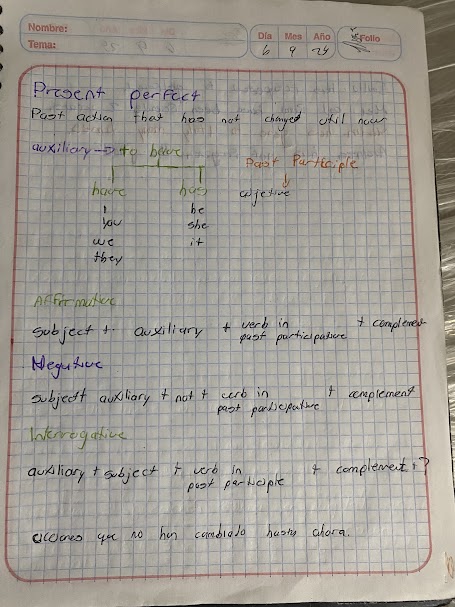 Nombre:
Tema:
Día Mes Año Folio
6 9 24
Present perfect
Past action that has not changed util now
auxiliary → to have
Past Participle
have has adjetive
I he
you she
we it
they
Affirmative
subject + auxiliary + verb in past participative + complement
Negative
subject + auxiliary + not + verb in past participative + complement
Interrogative
auxiliary + subject + verb in past participle + complement + ?
acciones que no han cambiado hasta ahora.